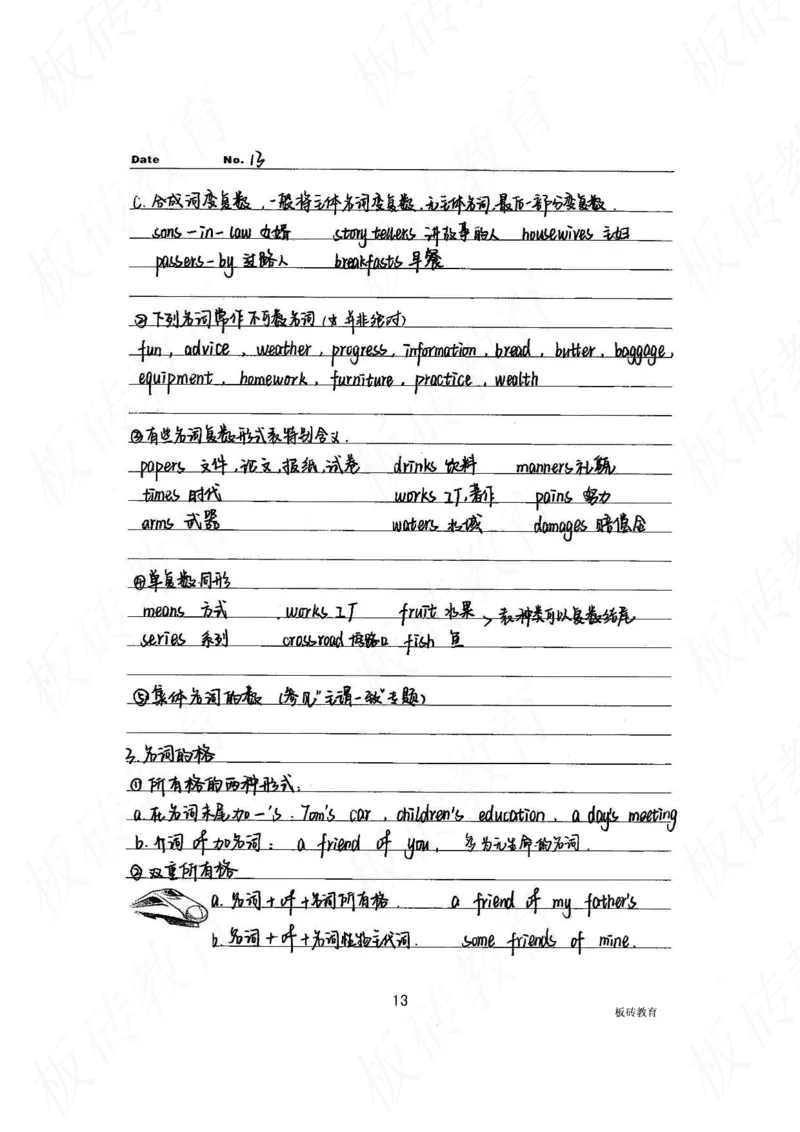 Date No. 13
C. 合成词变复数，一般将主体名词变复数，无主体名词，最后一部分变复数．
sons-in-law 女婿 story tellers 讲故事的人 housewives 主妇
passers-by 过路人 breakfasts 早餐
②下列名词常作不可数名词（但并非绝对）
fun, advice, weather, progress, information, bread, butter, baggage,
equipment, homework, furniture, practice, wealth
③有些名词复数形式表特别含义．
papers 文件，论文，报纸，试卷 drinks 饮料 manners 礼貌
times 时代 works 工厂，著作 pains 努力
arms 武器 waters 水域 damages 赔偿金
④单复数同形
means 方式 works 工厂 fruit 水果 > 表种类可以复数结尾
series 系列 crossroad 十字路口 fish 鱼
⑤集体名词的数（参见"主谓一致"专题）
3. 名词的格
①所有格的两种形式：
a. 在名词末尾加-'s. Tom's car, children's education, a day's meeting
b. 介词 of 加名词： a friend of you, 多为无生命的名词．
②双重所有格
a. 名词+of+名词所有格． a friend of my father's
b. 名词+of+名词性物主代词． some friends of mine.
13
板砖教育